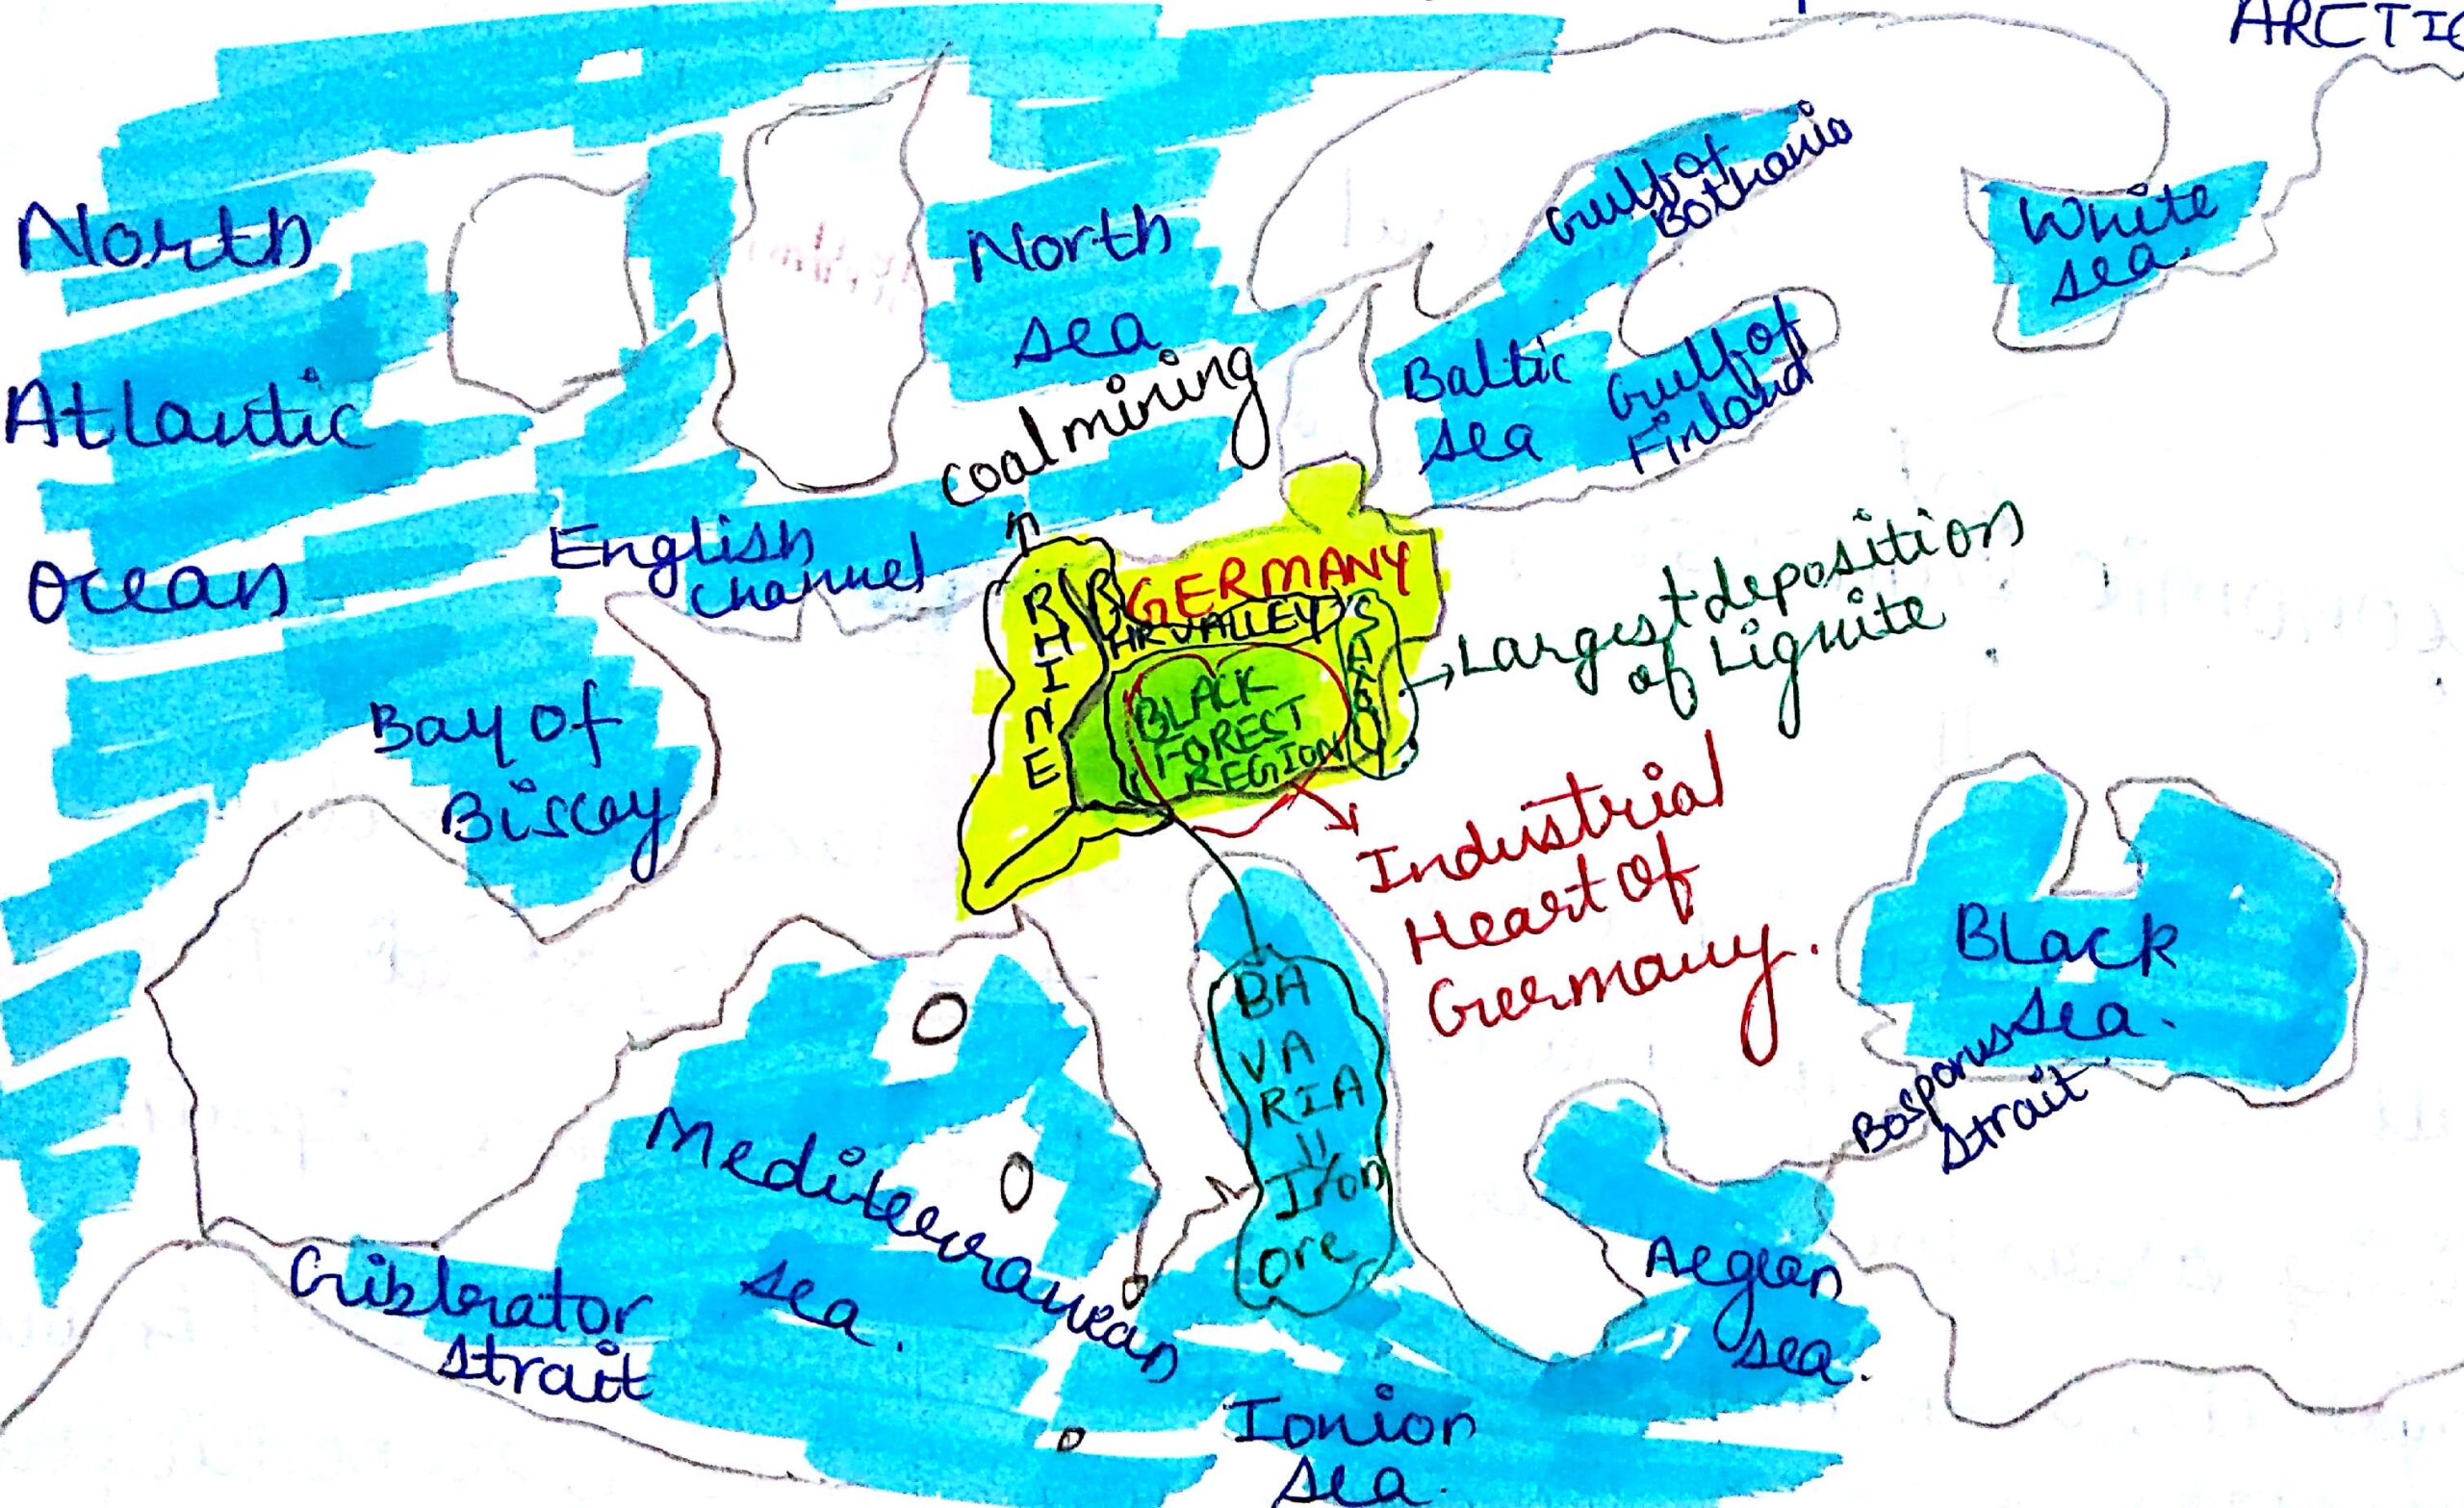 ARCTIC
North
Atlantic
Ocean
North
sea
Gulf of
Bothania
White
sea.
Baltic
sea
Gulf of
Finland
coal mining
English
channel
GERMANY
RHINE
RUHR VALLEY
BLACK
FOREST
REGION
Largest deposition
of Lignite
Industrial
Heart of
Germany.
Bay of
Biscay
BA
VA
RIA
Iron
ore
Black
sea.
Bosporus
strait
Mediterranean
sea.
Giblerator
strait
Aegean
sea.
Ionion
sea.